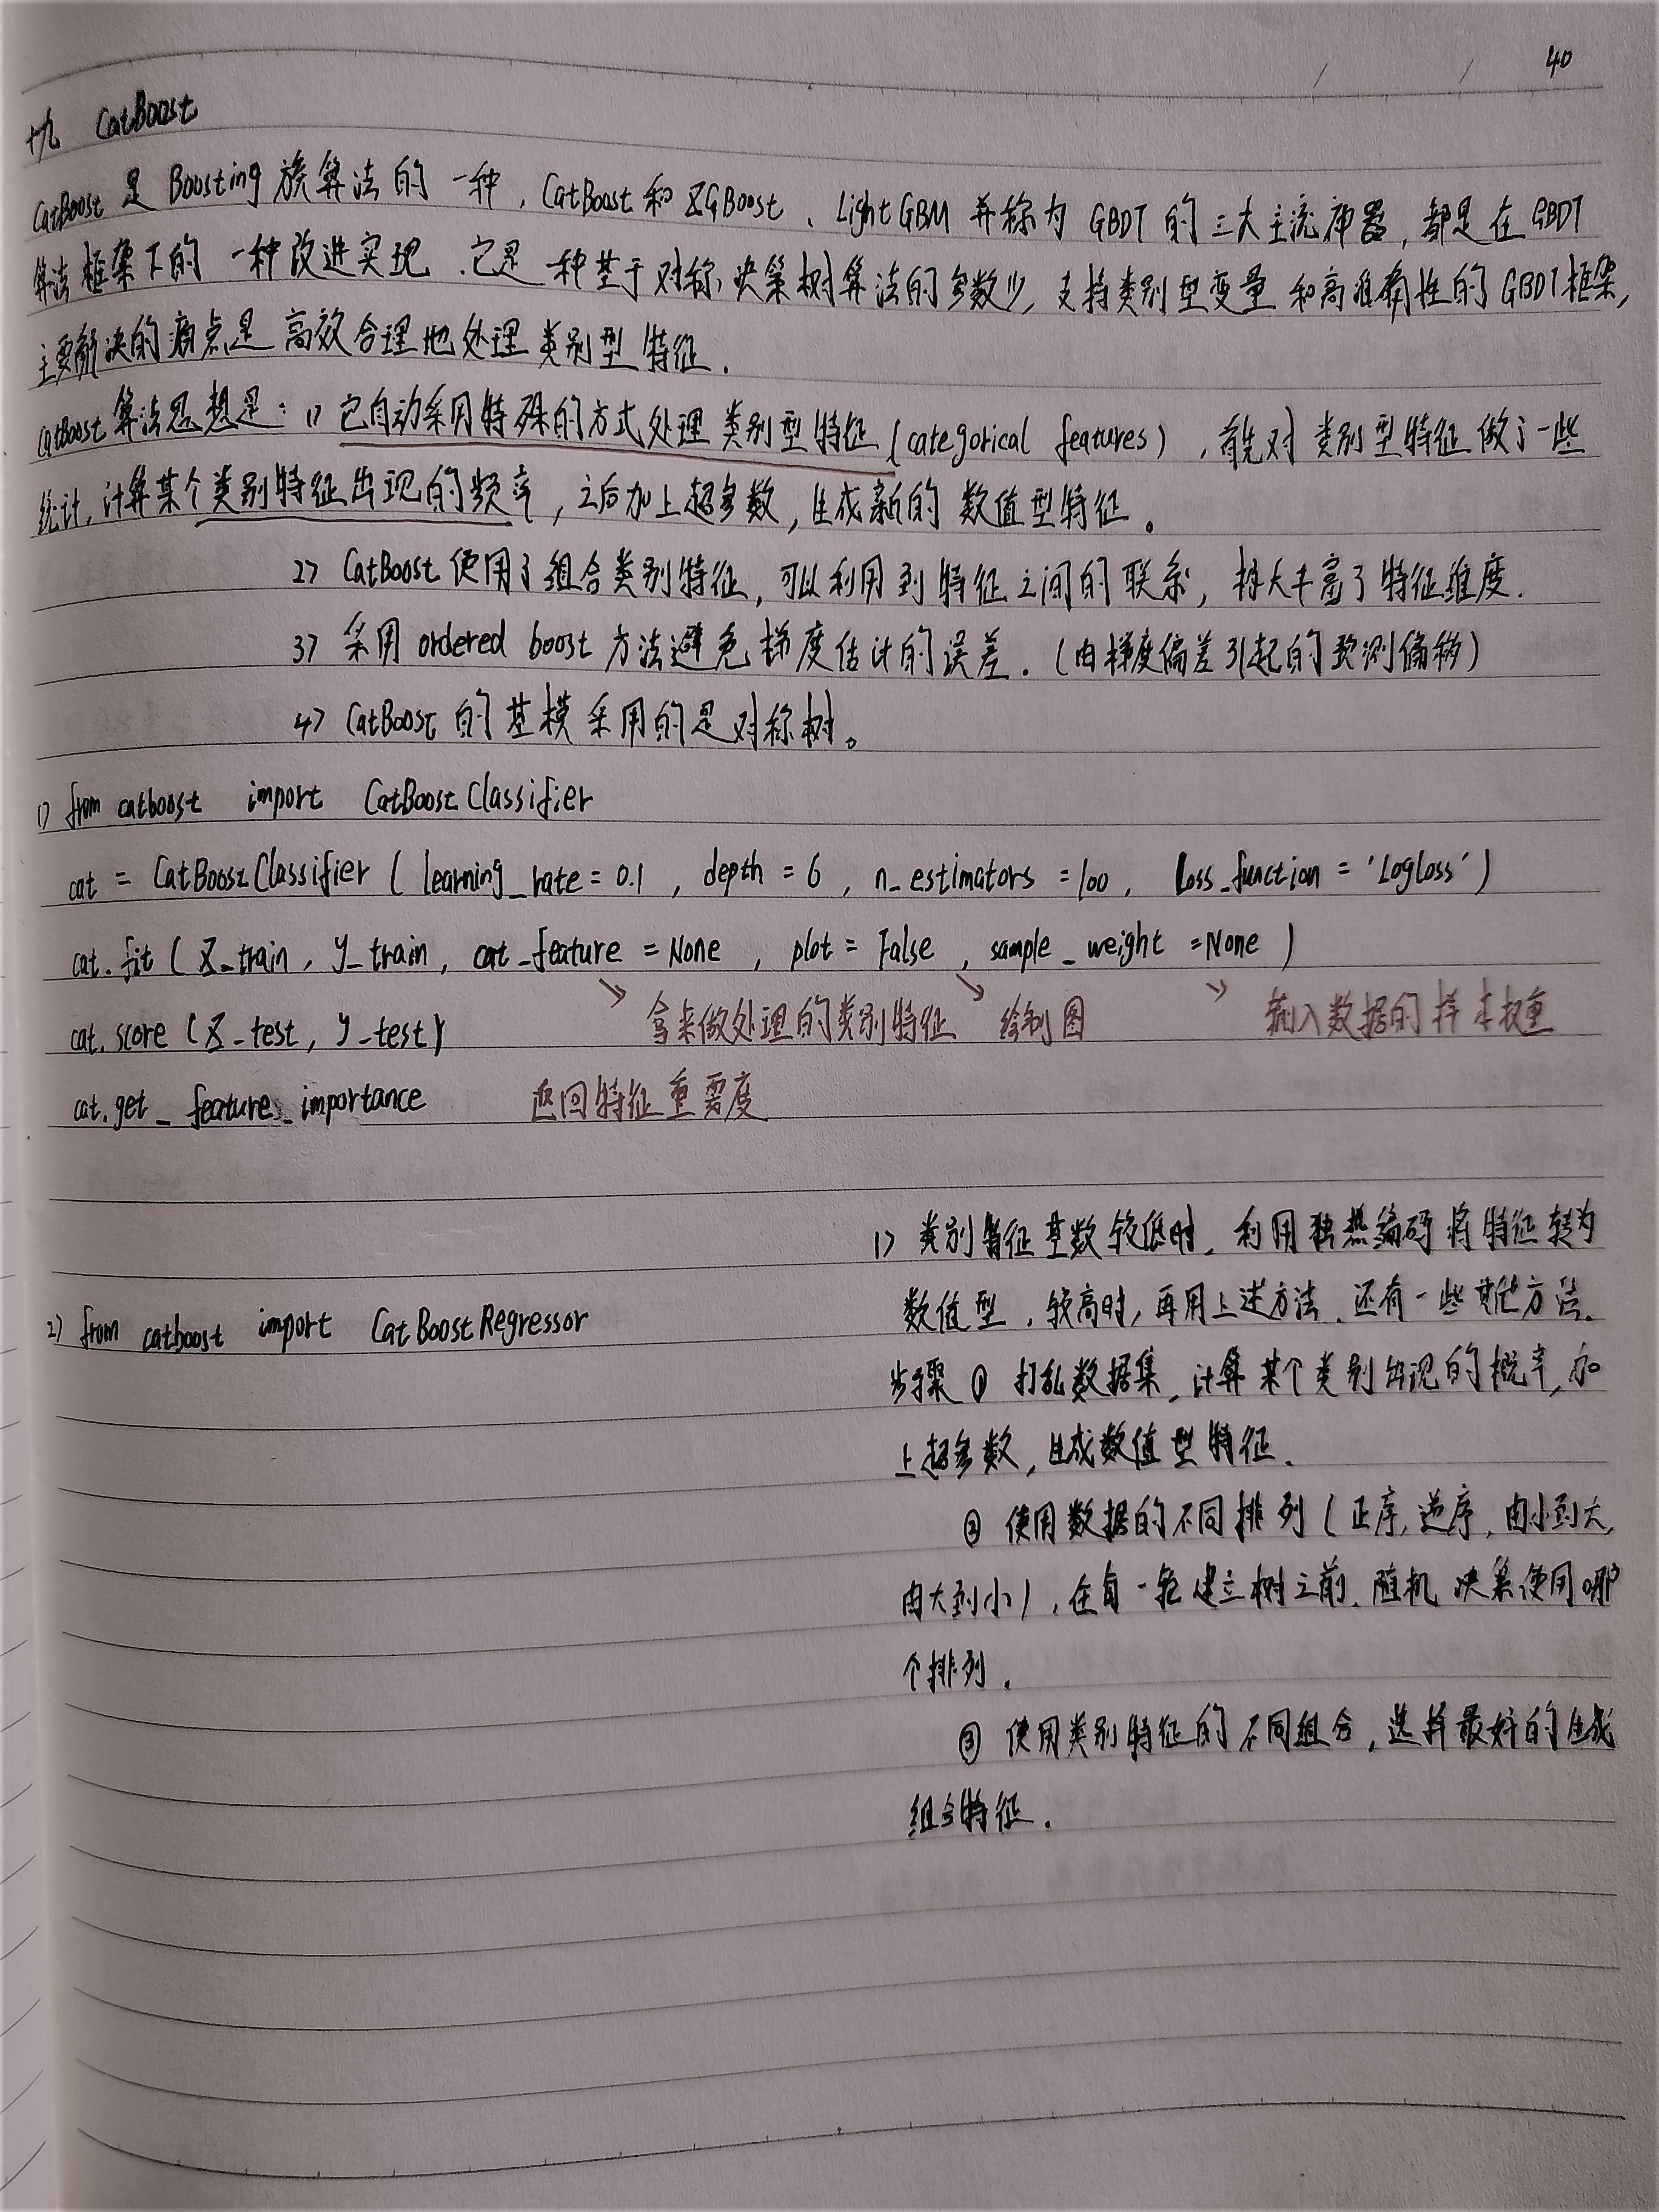 40
十九 CatBoost
CatBoost 是 Boosting 族算法的一种，CatBoost和XGBoost、LightGBM 并称为 GBDT 的三大主流神器，都是在GBDT
算法框架下的一种改进实现．它是一种基于对称决策树算法的参数少，支持类别型变量和高准确性的GBDT框架，
主要解决的痛点是高效合理地处理类别型特征．
CatBoost算法思想是：1) 它自动采用特殊的方式处理类别型特征 (categorical features)，首先对类别型特征做了一些
统计，计算某个类别特征出现的频率，之后加上超参数，生成新的数值型特征。
2) CatBoost使用了组合类别特征，可以利用到特征之间的联系，极大丰富了特征维度．
3) 采用 ordered boost 方法避免梯度估计的误差．（由梯度偏差引起的预测偏移）
4) CatBoost 的基模采用的是对称树。
1) from catboost import CatBoostClassifier
cat = CatBoostClassifier ( learning_rate = 0.1 , depth = 6 , n_estimators = 100 , loss_function = 'Logloss' )
cat.fit ( X_train , y_train , cat_feature = None , plot = False , sample_weight = None )
↘ 拿来做处理的类别特征 ↘ 绘制图 ↘ 输入数据的样本权重
cat.score (X_test, y_test)
cat.get_feature_importance 返回特征重要度
1) 类别特征基数较低时，利用独热编码将特征转为
数值型，较高时，再用上述方法．还有一些其他方法．
2) from catboost import CatBoostRegressor
步骤 ① 打乱数据集，计算某个类别出现的概率，加
上超参数，生成数值型特征．
② 使用数据的不同排列（正序，逆序，由小到大，
由大到小），在每一轮建立树之前，随机决策使用哪
个排列．
③ 使用类别特征的不同组合，选择最好的生成
组合特征．